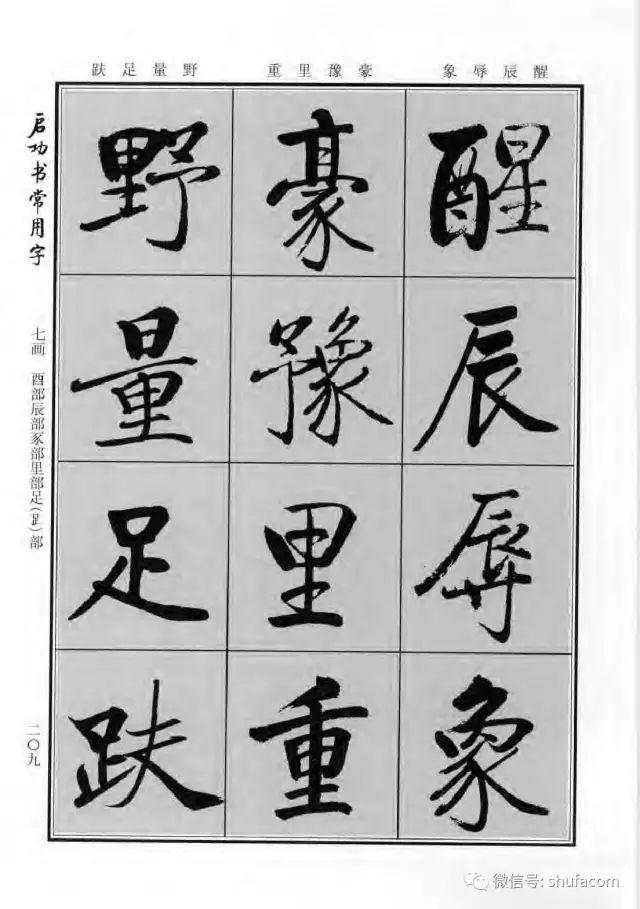 醒辰辱象
豪豫里重
野量足趺
醒
辰
辱
象
豪
豫
里
重
野
量
足
趺
启功书常用字
七画 酉部辰部豕部里部足(⻊)部
二〇九
微信号: shufacom